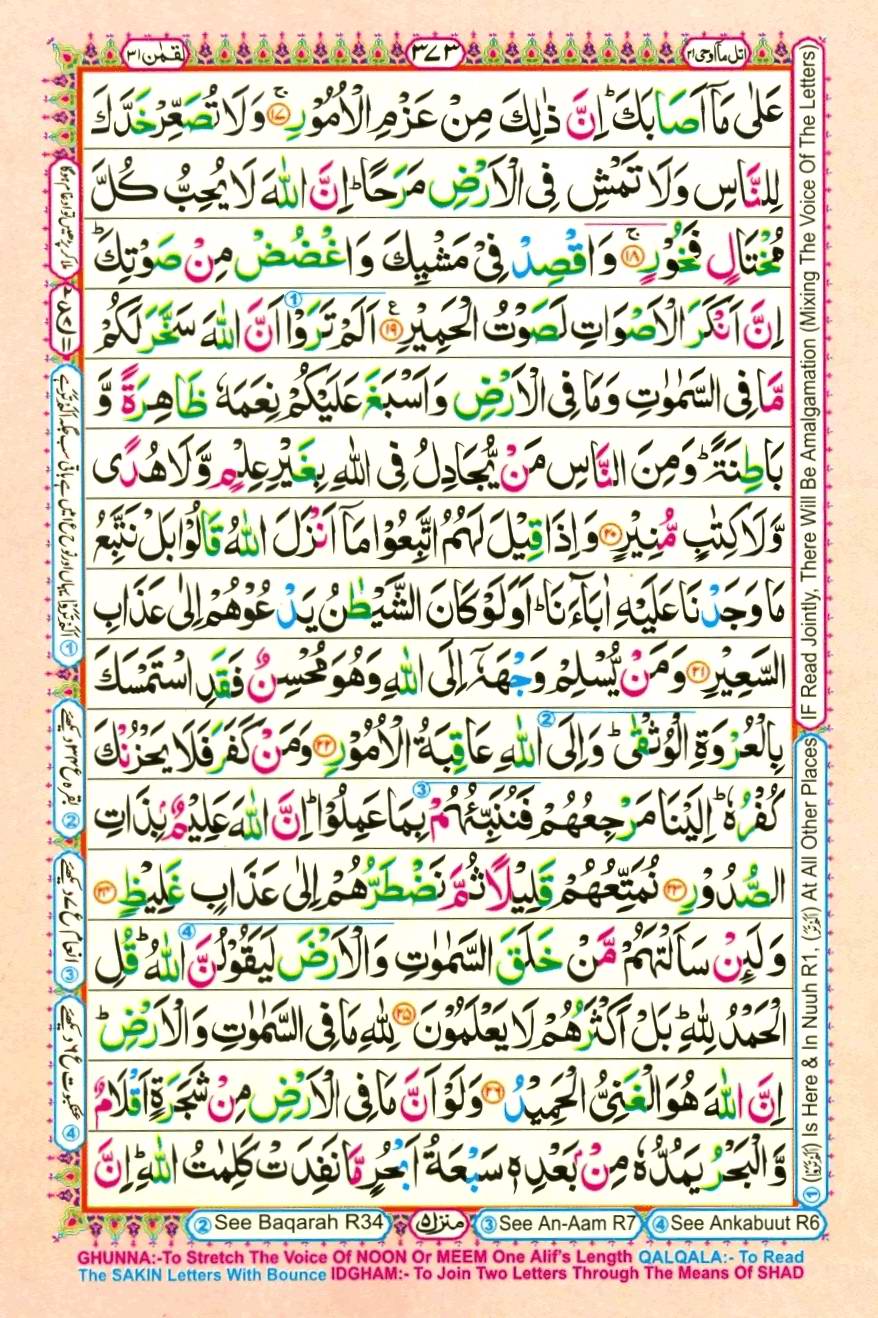 اتل ماۤ اوحی ۲۱
۳۷۳
لقمٰن ۳۱
عَلٰى مَاۤ اَصَابَكَ ؕ اِنَّ ذٰلِكَ مِنْ عَزْمِ الْاُمُوْرِ ۚ‏ ﴿۱۷﴾ وَلَا تُصَعِّرْ خَدَّكَ
لِلنَّاسِ وَلَا تَمْشِ فِى الْاَرْضِ مَرَحًا ؕ اِنَّ اللّٰهَ لَا يُحِبُّ كُلَّ
مُخْتَالٍ فَخُوْرٍ ۚ‏ ﴿۱۸﴾ وَاقْصِدْ فِىْ مَشْيِكَ وَاغْضُضْ مِنْ صَوْتِكَ ؕ
اِنَّ اَنْكَرَ الْاَصْوَاتِ لَصَوْتُ الْحَمِيْرِ ﴿۱۹﴾ ع اَلَمْ تَرَوْا ① اَنَّ اللّٰهَ سَخَّرَ لَكُمْ
مَّا فِى السَّمٰوٰتِ وَمَا فِى الْاَرْضِ وَاَسْبَغَ عَلَيْكُمْ نِعَمَهٗ ظَاهِرَةً وَّ
بَاطِنَةً ؕ وَمِنَ النَّاسِ مَنْ يُّجَادِلُ فِى اللّٰهِ بِغَيْرِ عِلْمٍ وَّلَا هُدًى
وَّلَا كِتٰبٍ مُّنِيْرٍ ﴿۲۰﴾ وَاِذَا قِيْلَ لَهُمُ اتَّبِعُوْا مَاۤ اَنْزَلَ اللّٰهُ قَالُوْا بَلْ نَتَّبِعُ
مَا وَجَدْنَا عَلَيْهِ اٰبَآءَنَا ؕ اَوَلَوْ كَانَ الشَّيْطٰنُ يَدْعُوْهُمْ اِلٰى عَذَابِ
السَّعِيْرِ ﴿۲۱﴾ وَمَنْ يُّسْلِمْ وَجْهَهٗۤ اِلَى اللّٰهِ وَهُوَ مُحْسِنٌ فَقَدِ اسْتَمْسَكَ
بِالْعُرْوَةِ الْوُثْقٰى ؕ وَاِلَى اللّٰهِ ② عَاقِبَةُ الْاُمُوْرِ ﴿۲۲﴾ وَمَنْ كَفَرَ فَلَا يَحْزُنْكَ
كُفْرُهٗ ؕ اِلَيْنَا مَرْجِعُهُمْ فَنُنَبِّئُهُمْ ③ بِمَا عَمِلُوْا ؕ اِنَّ اللّٰهَ عَلِيْمٌۢ بِذَاتِ
الصُّدُوْرِ ﴿۲۳﴾ نُمَتِّعُهُمْ قَلِيْلًا ثُمَّ نَضْطَرُّهُمْ اِلٰى عَذَابٍ غَلِيْظٍ ﴿۲۴﴾
وَلَئِنْ سَاَلْتَهُمْ مَّنْ خَلَقَ السَّمٰوٰتِ وَالْاَرْضَ لَيَقُوْلُنَّ ④ اللّٰهُ ؕ قُلِ
الْحَمْدُ لِلّٰهِ ؕ بَلْ اَكْثَرُهُمْ لَا يَعْلَمُوْنَ ﴿۲۵﴾ لِلّٰهِ مَا فِى السَّمٰوٰتِ وَالْاَرْضِ ؕ
اِنَّ اللّٰهَ هُوَ الْغَنِىُّ الْحَمِيْدُ ﴿۲۶﴾ وَلَوْ اَنَّ مَا فِى الْاَرْضِ مِنْ شَجَرَةٍ اَقْلَامٌ
وَّالْبَحْرُ يَمُدُّهٗ مِنْۢ بَعْدِهٖ سَبْعَةُ اَبْحُرٍ مَّا نَفِدَتْ كَلِمٰتُ اللّٰهِ ؕ اِنَّ
IF Read Jointly, There Will Be Amalgamation (Mixing The Voice Of The Letters)
① (اَلَمْ تَرَوْا) Is Here & In Nuuh R1, (اَلَمْ تَرَ) At All Other Places
② بقرہ ع ۳۴ دیکھئے
③ انعام ع ۷ دیکھئے
④ عنکبوت ع ۶ دیکھئے
② See Baqarah R34
منزل ۵
③ See An-Aam R7
④ See Ankabuut R6
GHUNNA:-To Stretch The Voice Of NOON Or MEEM One Alif's Length QALQALA:- To Read
The SAKIN Letters With Bounce IDGHAM:- To Join Two Letters Through The Means Of SHAD